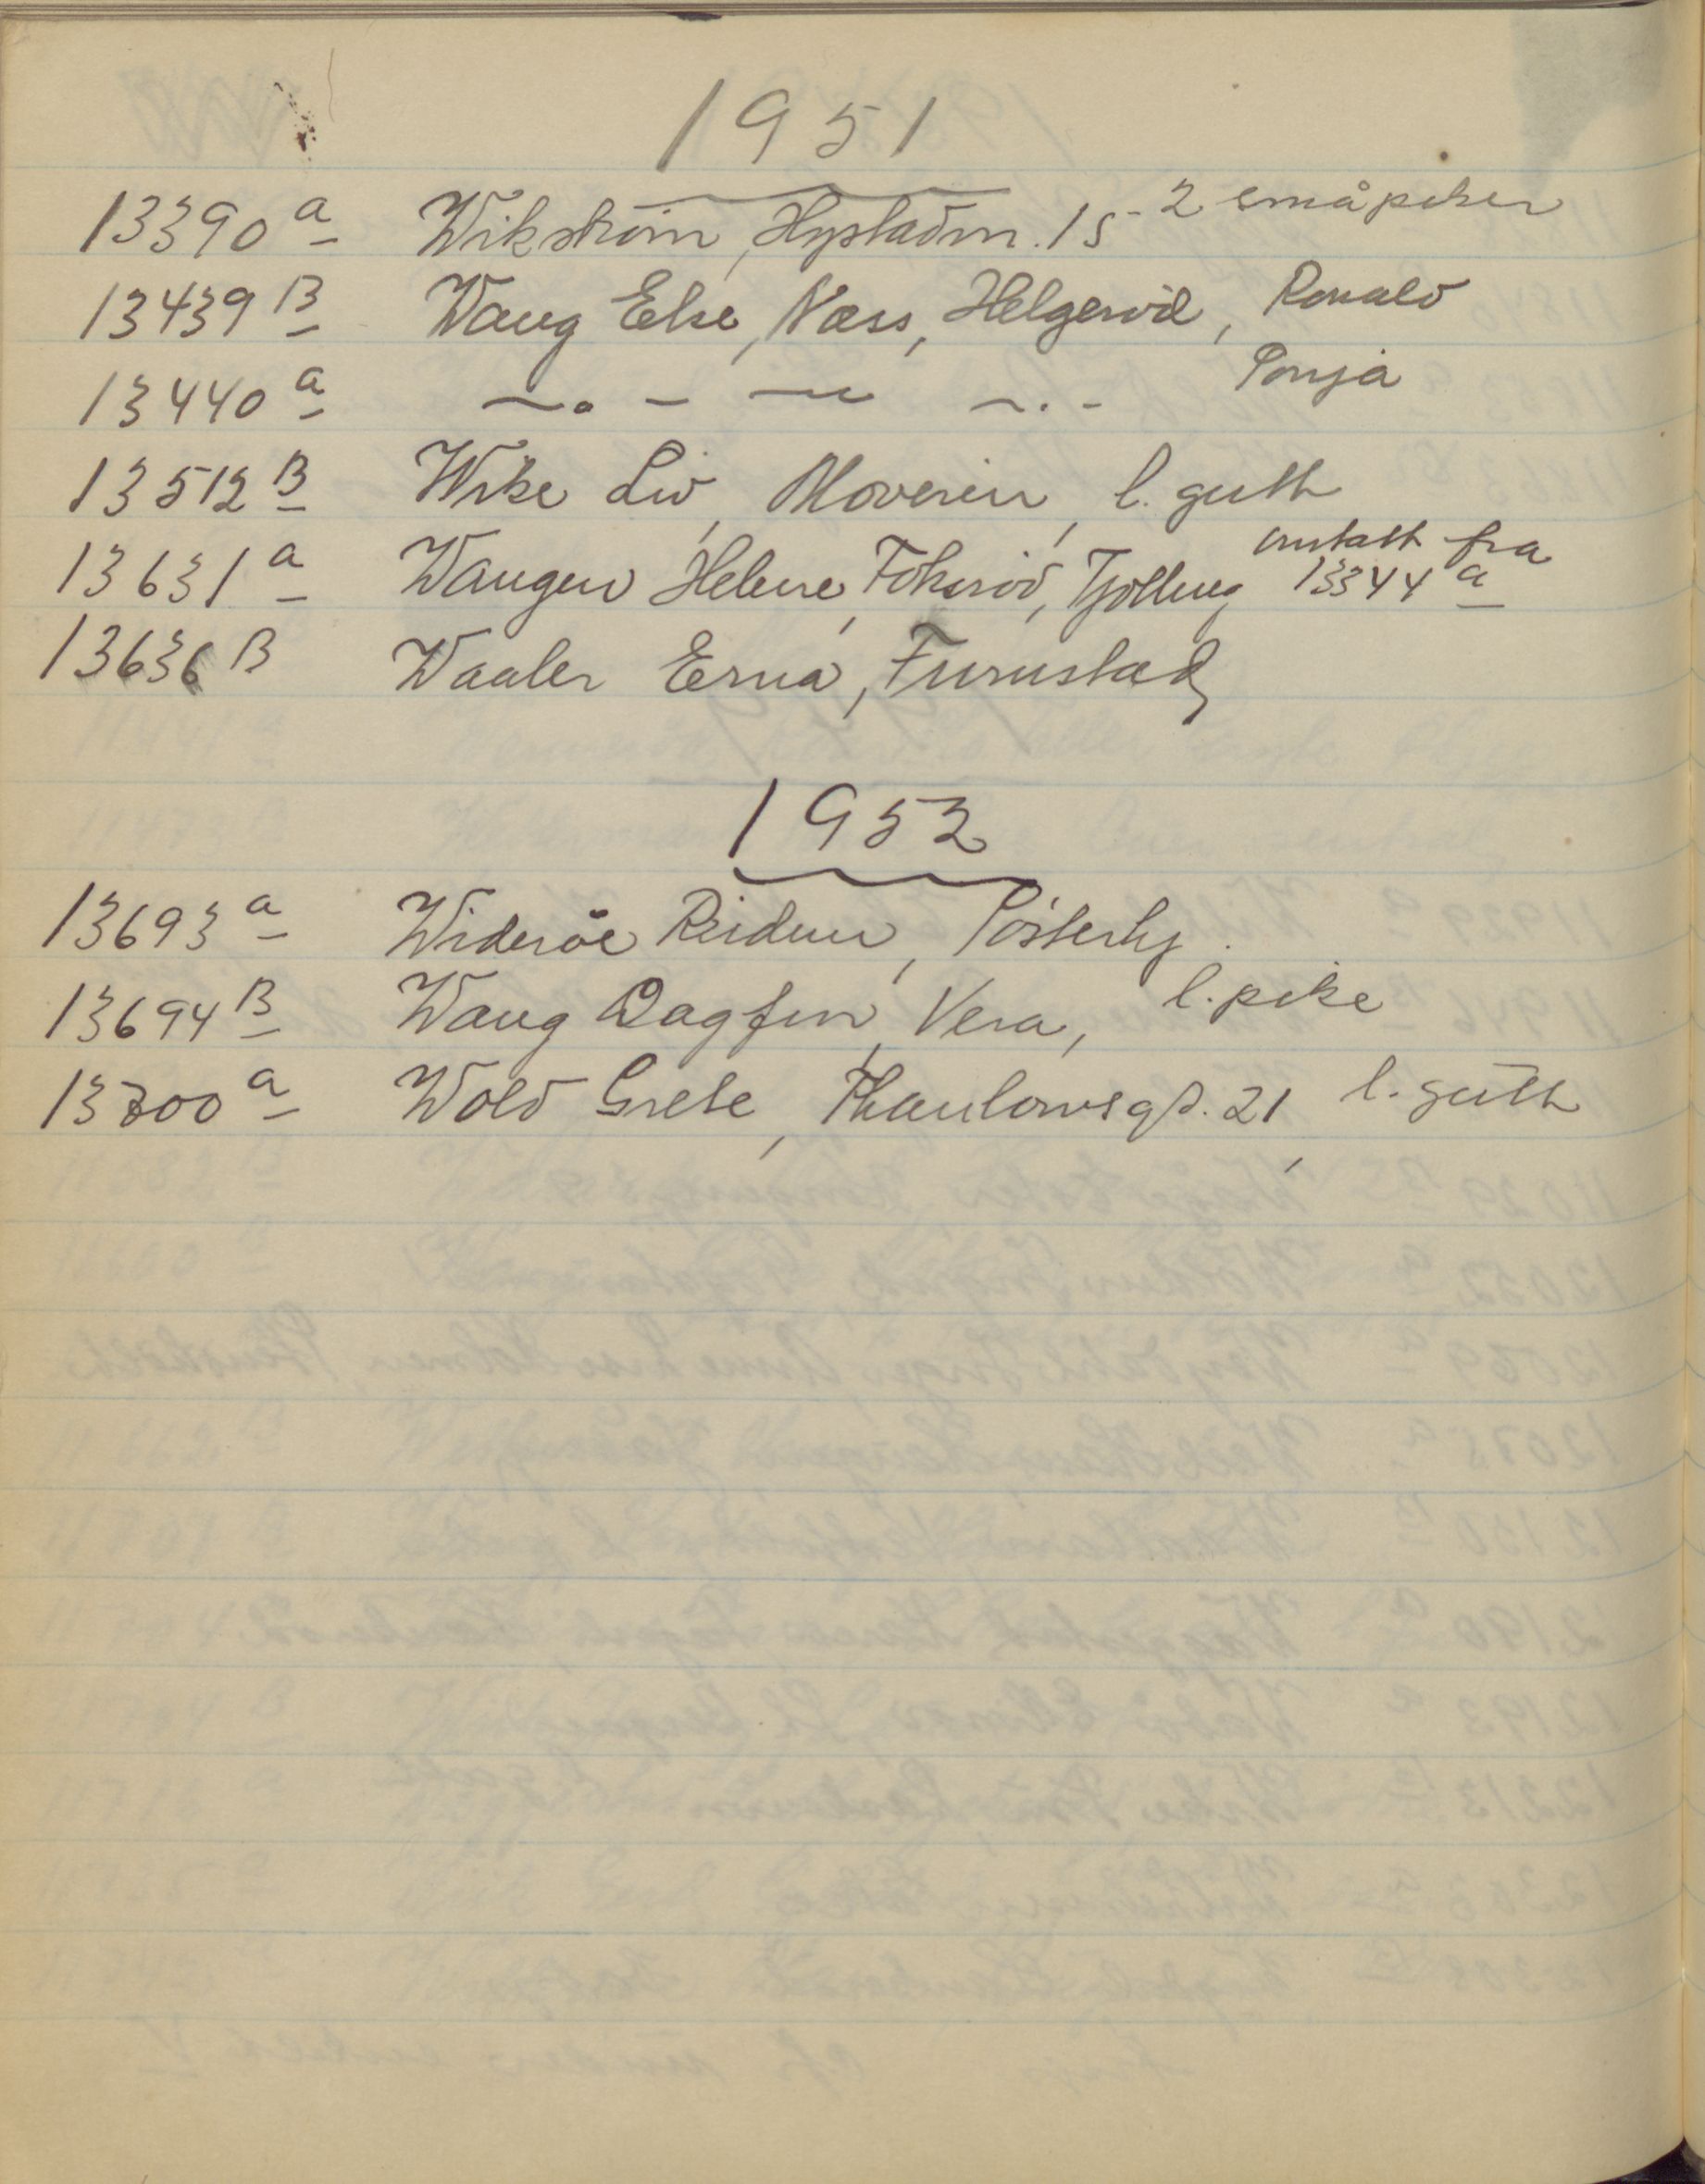 1951
13390 a Wikström, Hystadvn. 15 - 2 småpiker
13439 B Wang Else, Næss, Helgeröd, Ronald
13440 a —·— — —·— Ponja
13512 B Wike Liv, Moveien, l. gutt
13631 a Wangen Helene, Fokseröd, Tjölling omtatt fra 13344 a
13636 B Waaler Erna, Furustad
1952
13693 a Wideröe Reidun, Österby.
13694 B Wang Dagfin, Vera, l. pike
13700 a Wold Grete, Thaulowsgt. 21, l. gutt